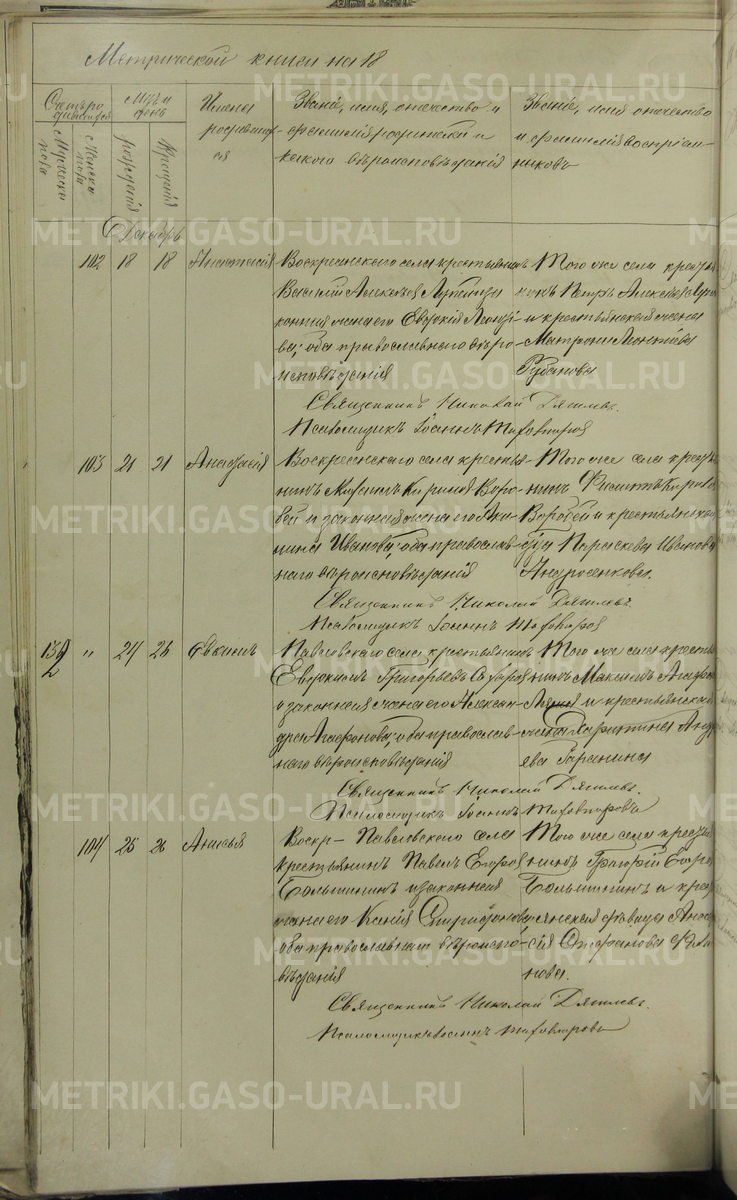 Метрической книги на 18
Счетъ родившихся
Мужеска пола
Женска пола
Мѣсяцъ и день
рожденія
крещенія
Имена родившихся
Званіе, имя, отчество и
фамилія родителей и
какого вѣроисповѣданія
Званіе, имя отчество
и фамилія воспріем-
никовъ
Декабрь
102 18 18 Анастасія
Воскресенскаго села крестьянинъ
Василій Алексѣевъ
конная жена его Евдокія Леонтіе
ва; оба православнаго вѣро-
исповѣданія
Того же села крестья
нинъ Петръ Алексѣевъ
и крестьянская жена
Матрона Леонтіева
Рубанова
Священникъ Николай Дягилевъ.
Псаломщикъ Іоаннъ Тиховторовъ
103 21 21 Анастасія
Воскресенскаго села крестья-
нинъ Михаилъ Кириловъ Воро-
бей и законная жена его Аки-
лина Иванова; оба православ-
наго вѣроисповѣданія
Того же села крестья
нинъ Филиппъ Кирилов
Воробей и крестьянская
Параскева Иванова
Андросенкова.
Священникъ Николай Дягилевъ
Псаломщикъ Іоаннъ
132 " 24 26 Евѳимъ
Павловскаго села крестьянинъ
Евдокимъ Григорьевъ
законная жена его Алексан-
дра Агафонова; оба православ-
наго вѣроисповѣданія
Того же села крестья
нинъ Максимъ Агафон
и крестьянская
жена Харитина Андре
ева Гаранина
Священникъ Николай Дягилевъ.
Псаломщикъ Іоаннъ
104 25 26 Анисья
Воскр- Павловскаго села
крестьянинъ Павелъ Егоровъ
Большининъ и законная
жена его Ксенія Спиридонова
оба православнаго вѣроиспо-
вѣданія
Того же села крестья
нинъ Григорій Егоро
Большининъ и кре
стьянская дѣвица Анас
сія Стефанова
нова.
Священникъ Николай Дягилевъ.
Псаломщикъ Іоаннъ
METRIKI.GASO-URAL.RU